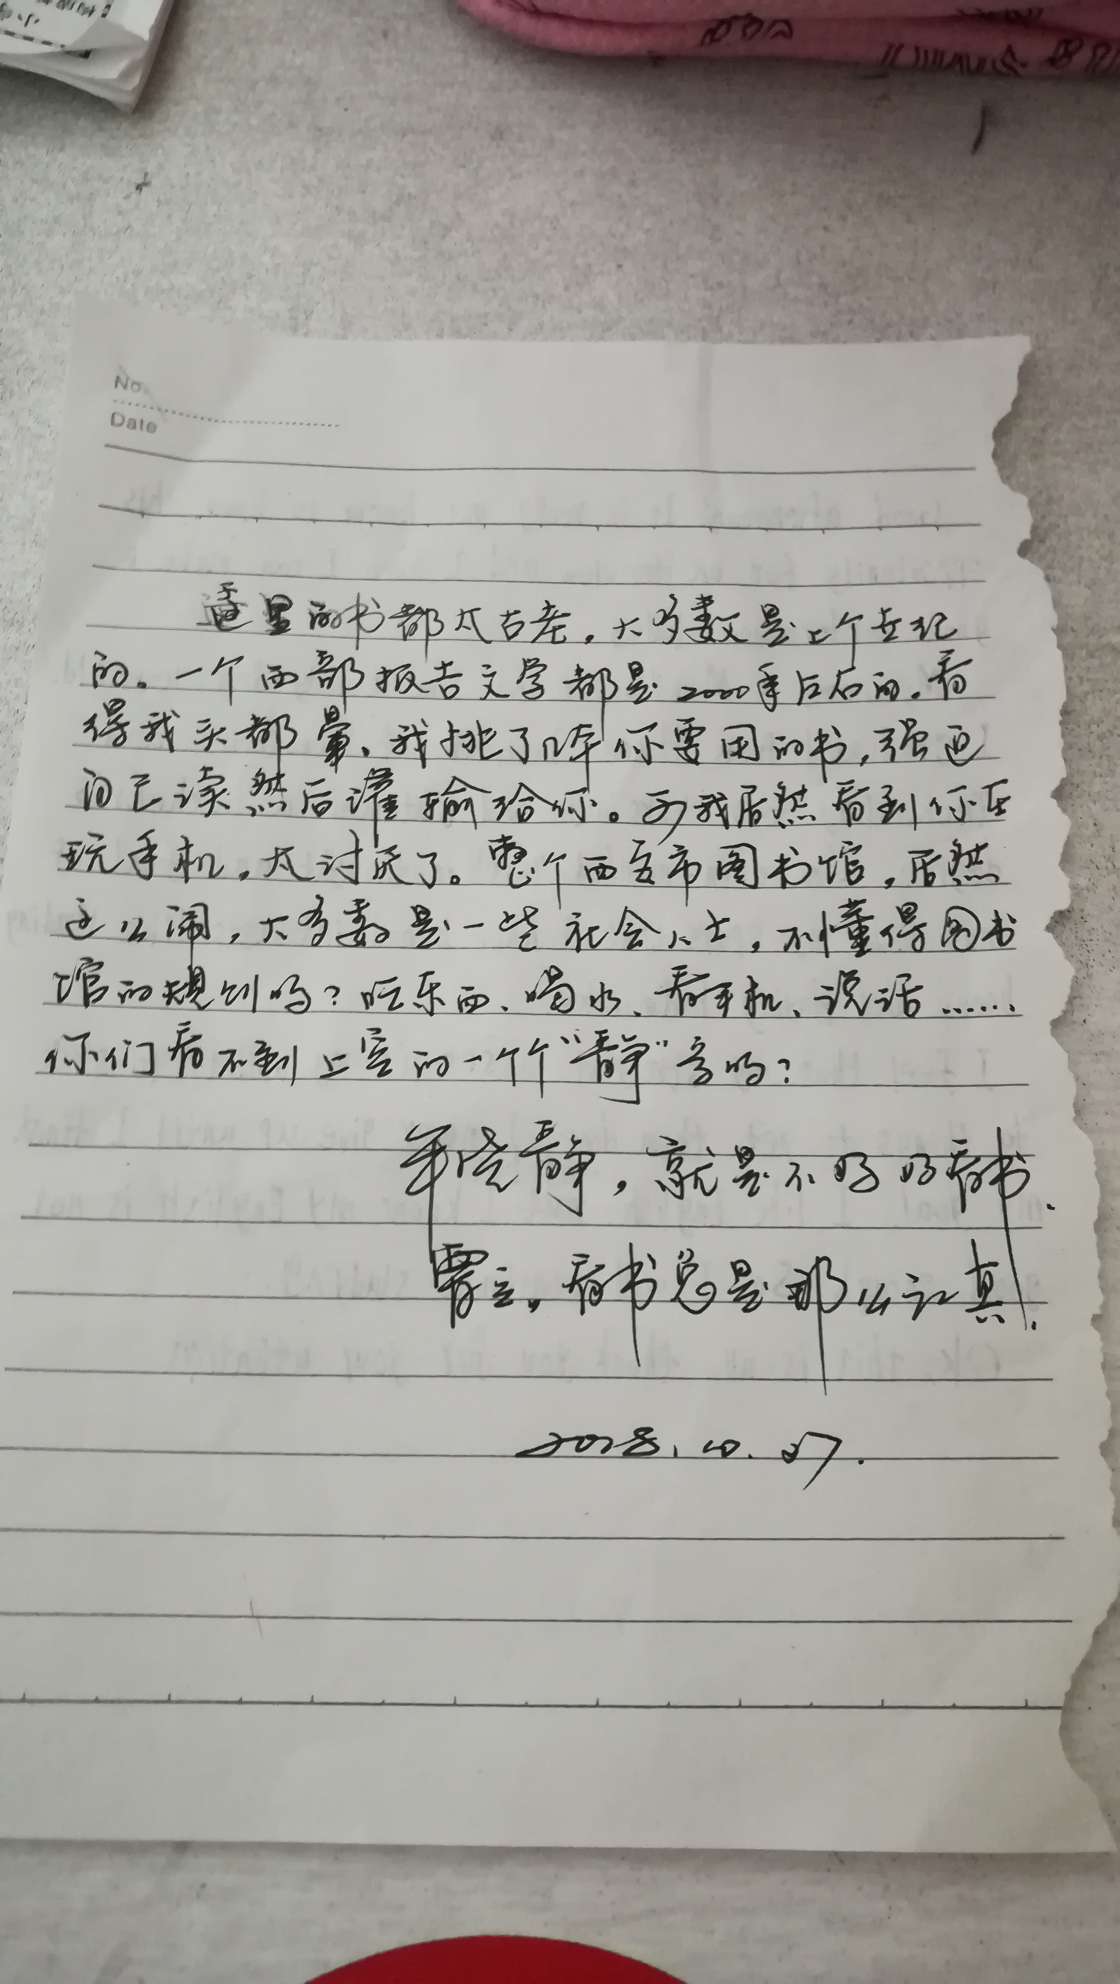 No.
Date
这里的书都太古老，大多数是上个世纪
的。一个西部报告文学都是2000年左右的，看
得我头都晕、我挑了几本你要用的书，强迫
自己读然后灌输给你。可我居然看到你在
玩手机，太讨厌了。整个西安市图书馆，居然
这么闹，大多数是一些社会人士，不懂得图书
馆的规则吗？吃东西、喝水、看手机、说话……
你们看不到上空的一个个“静”字吗？
静，就是不好好看书.
看书总是那么认真.
10.27.